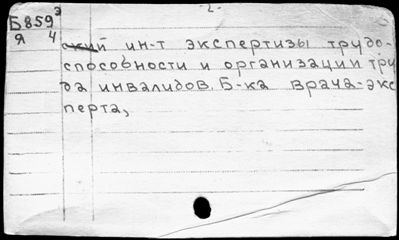 -2-
Б859э
Я 4
ский ин-т экспертизы трудо-
способности и организации тру
да инвалидов. Б-ка врача-экс
перта,